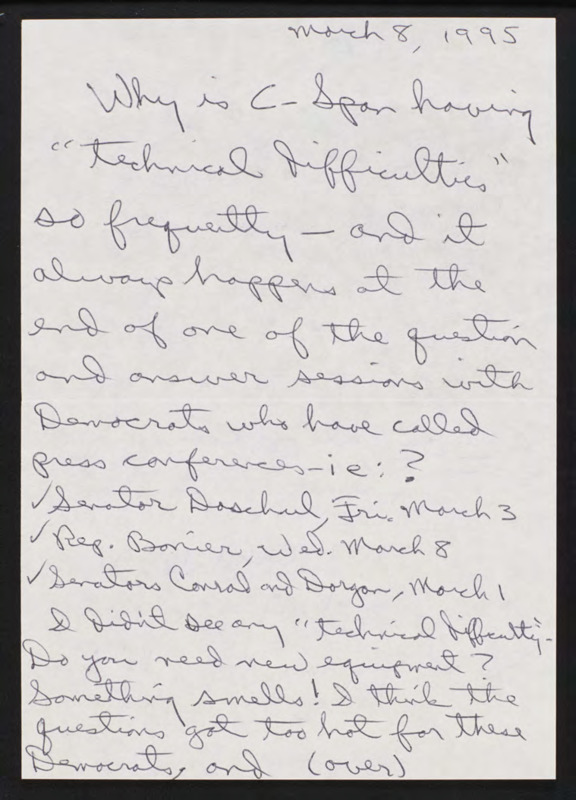 March 8, 1995
Why is C-Span having
"technical difficulties"
so frequently — and it
always happens at the
end of one of the question
and answer sessions with
Democrats who have called
press conferences-ie:?
✓Senator Daschul, Fri. March 3
✓Rep. Bonier, Wed. March 8
✓Senators Conrad and Dorgan, March 1
I didn't see any "technical difficulty".
Do you need new equipment?
Something smells! I think the
questions got too hot for these
Democrats, and (over)